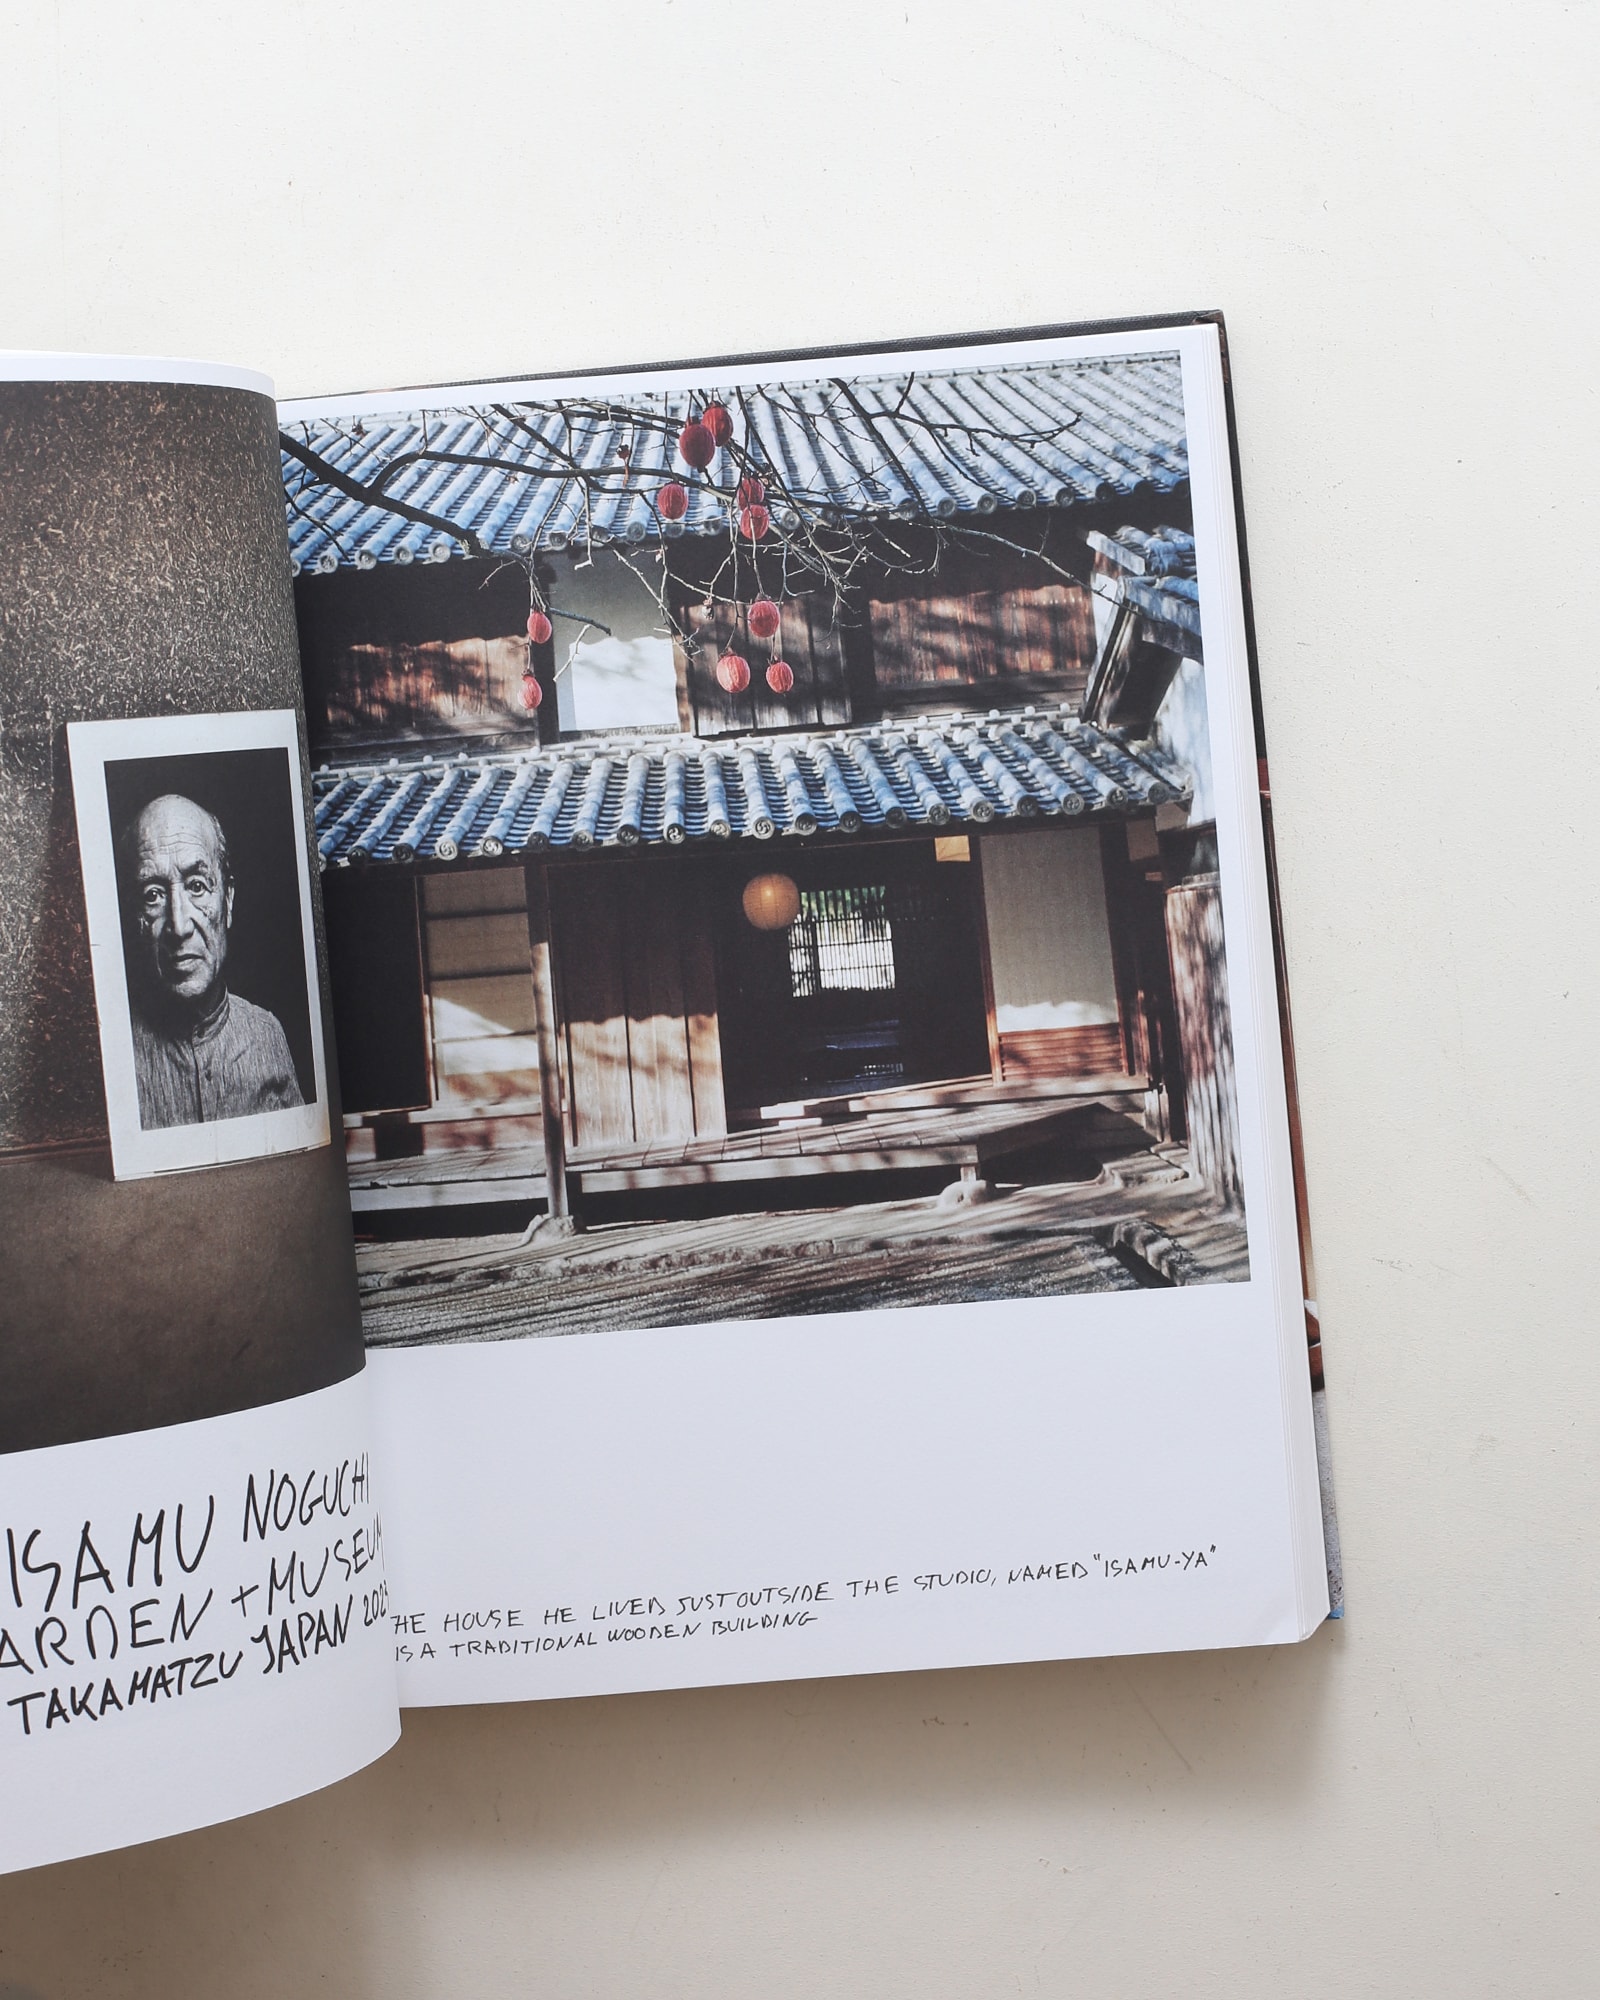 ISAMU NOGUCHI
ARDEN + MUSEUM
TAKAMATZU JAPAN 202
HE HOUSE HE LIVED JUST OUTSIDE THE STUDIO, NAMED "ISAMU-YA"
IS A TRADITIONAL WOODEN BUILDING